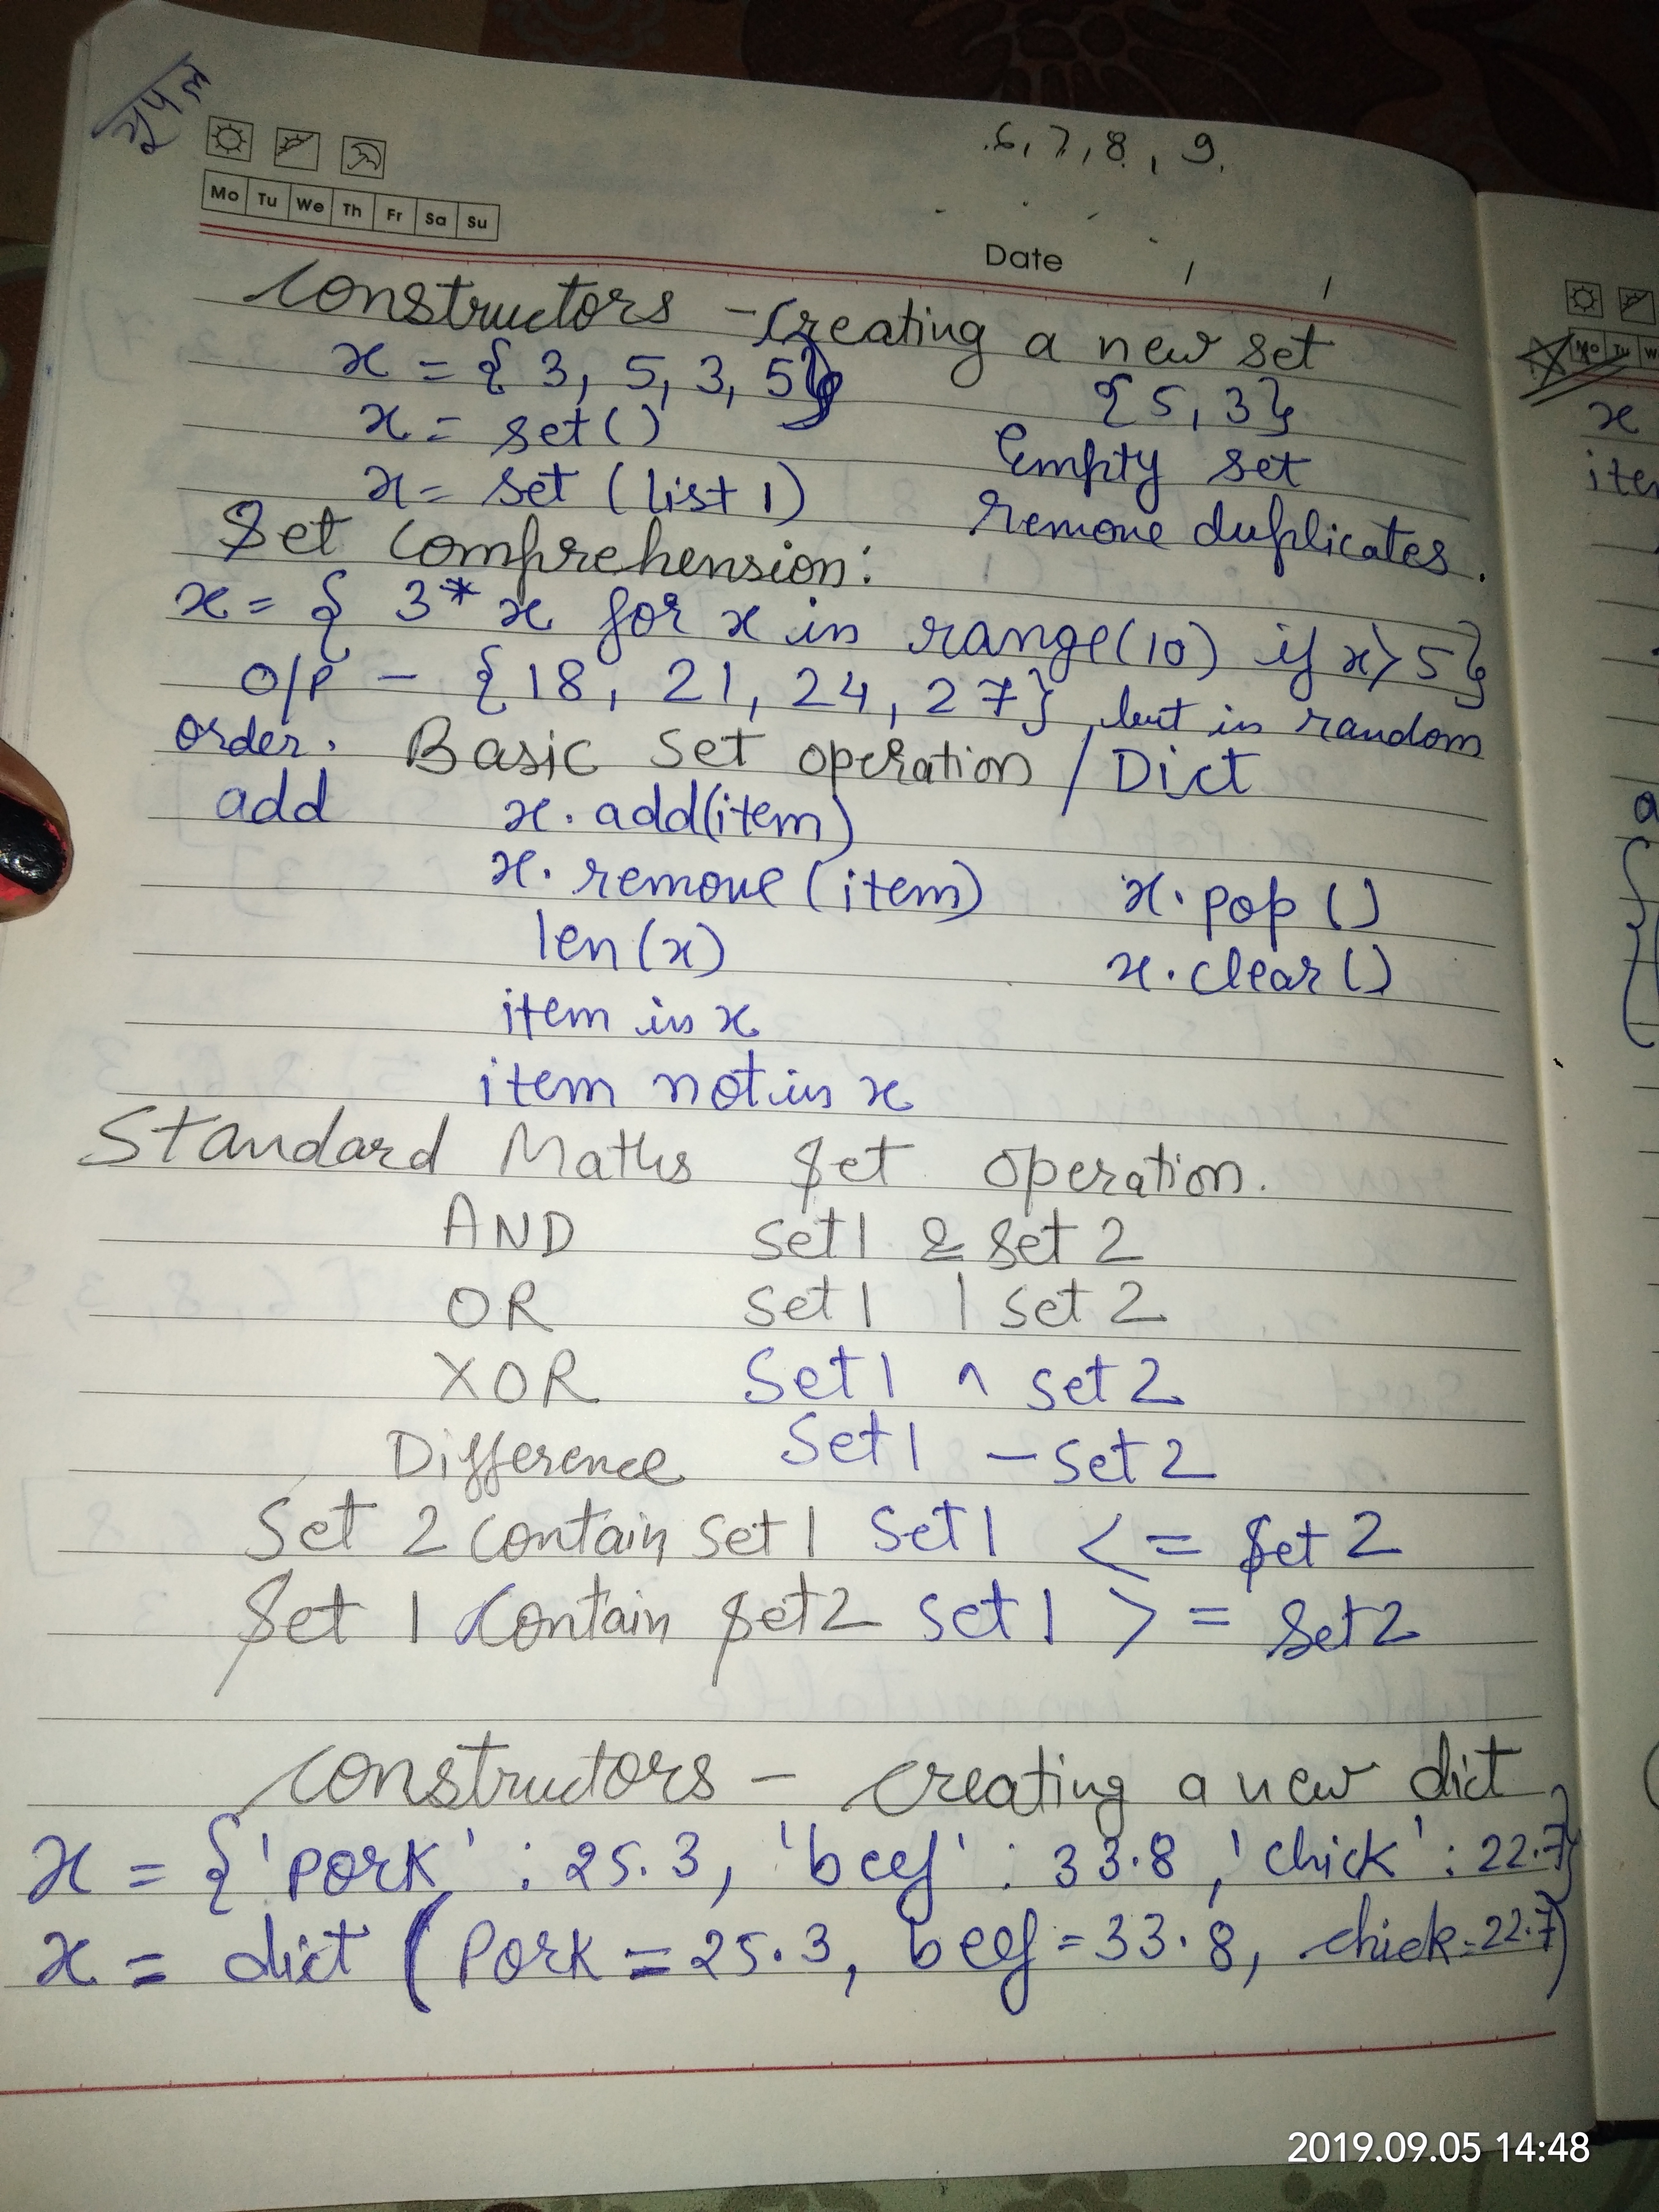 6, 7, 8, 9.
Mo Tu We Th Fr Sa Su
Date / /
Constructors - Creating a new set
x = { 3, 5, 3, 5} {5, 3}
x = set() Empty set
x = set (list 1) remove duplicates.
Set Comprehension:
x = { 3* x for x in range(10) if x>5}
O/P - {18, 21, 24, 27} but in random
order. Basic Set operation / Dict
add x. add(item)
x. remove (item) x. pop ()
len(x) x. clear()
item in x
item not in x
Standard Maths Set operation.
AND set1 & set 2
OR set1 | set 2
XOR Set1 ^ set 2
Difference Set1 - set 2
Set 2 contain set1 set1 <= Set 2
Set 1 Contain Set2 set1 >= Set2
Constructors - creating a new dict
x = {'pork' : 25.3, 'beef' : 33.8, 'chick' : 22.7}
x = dict (Pork = 25.3, beef = 33.8, chick=22.7)
Mo Tu W
x
2019.09.05 14:48